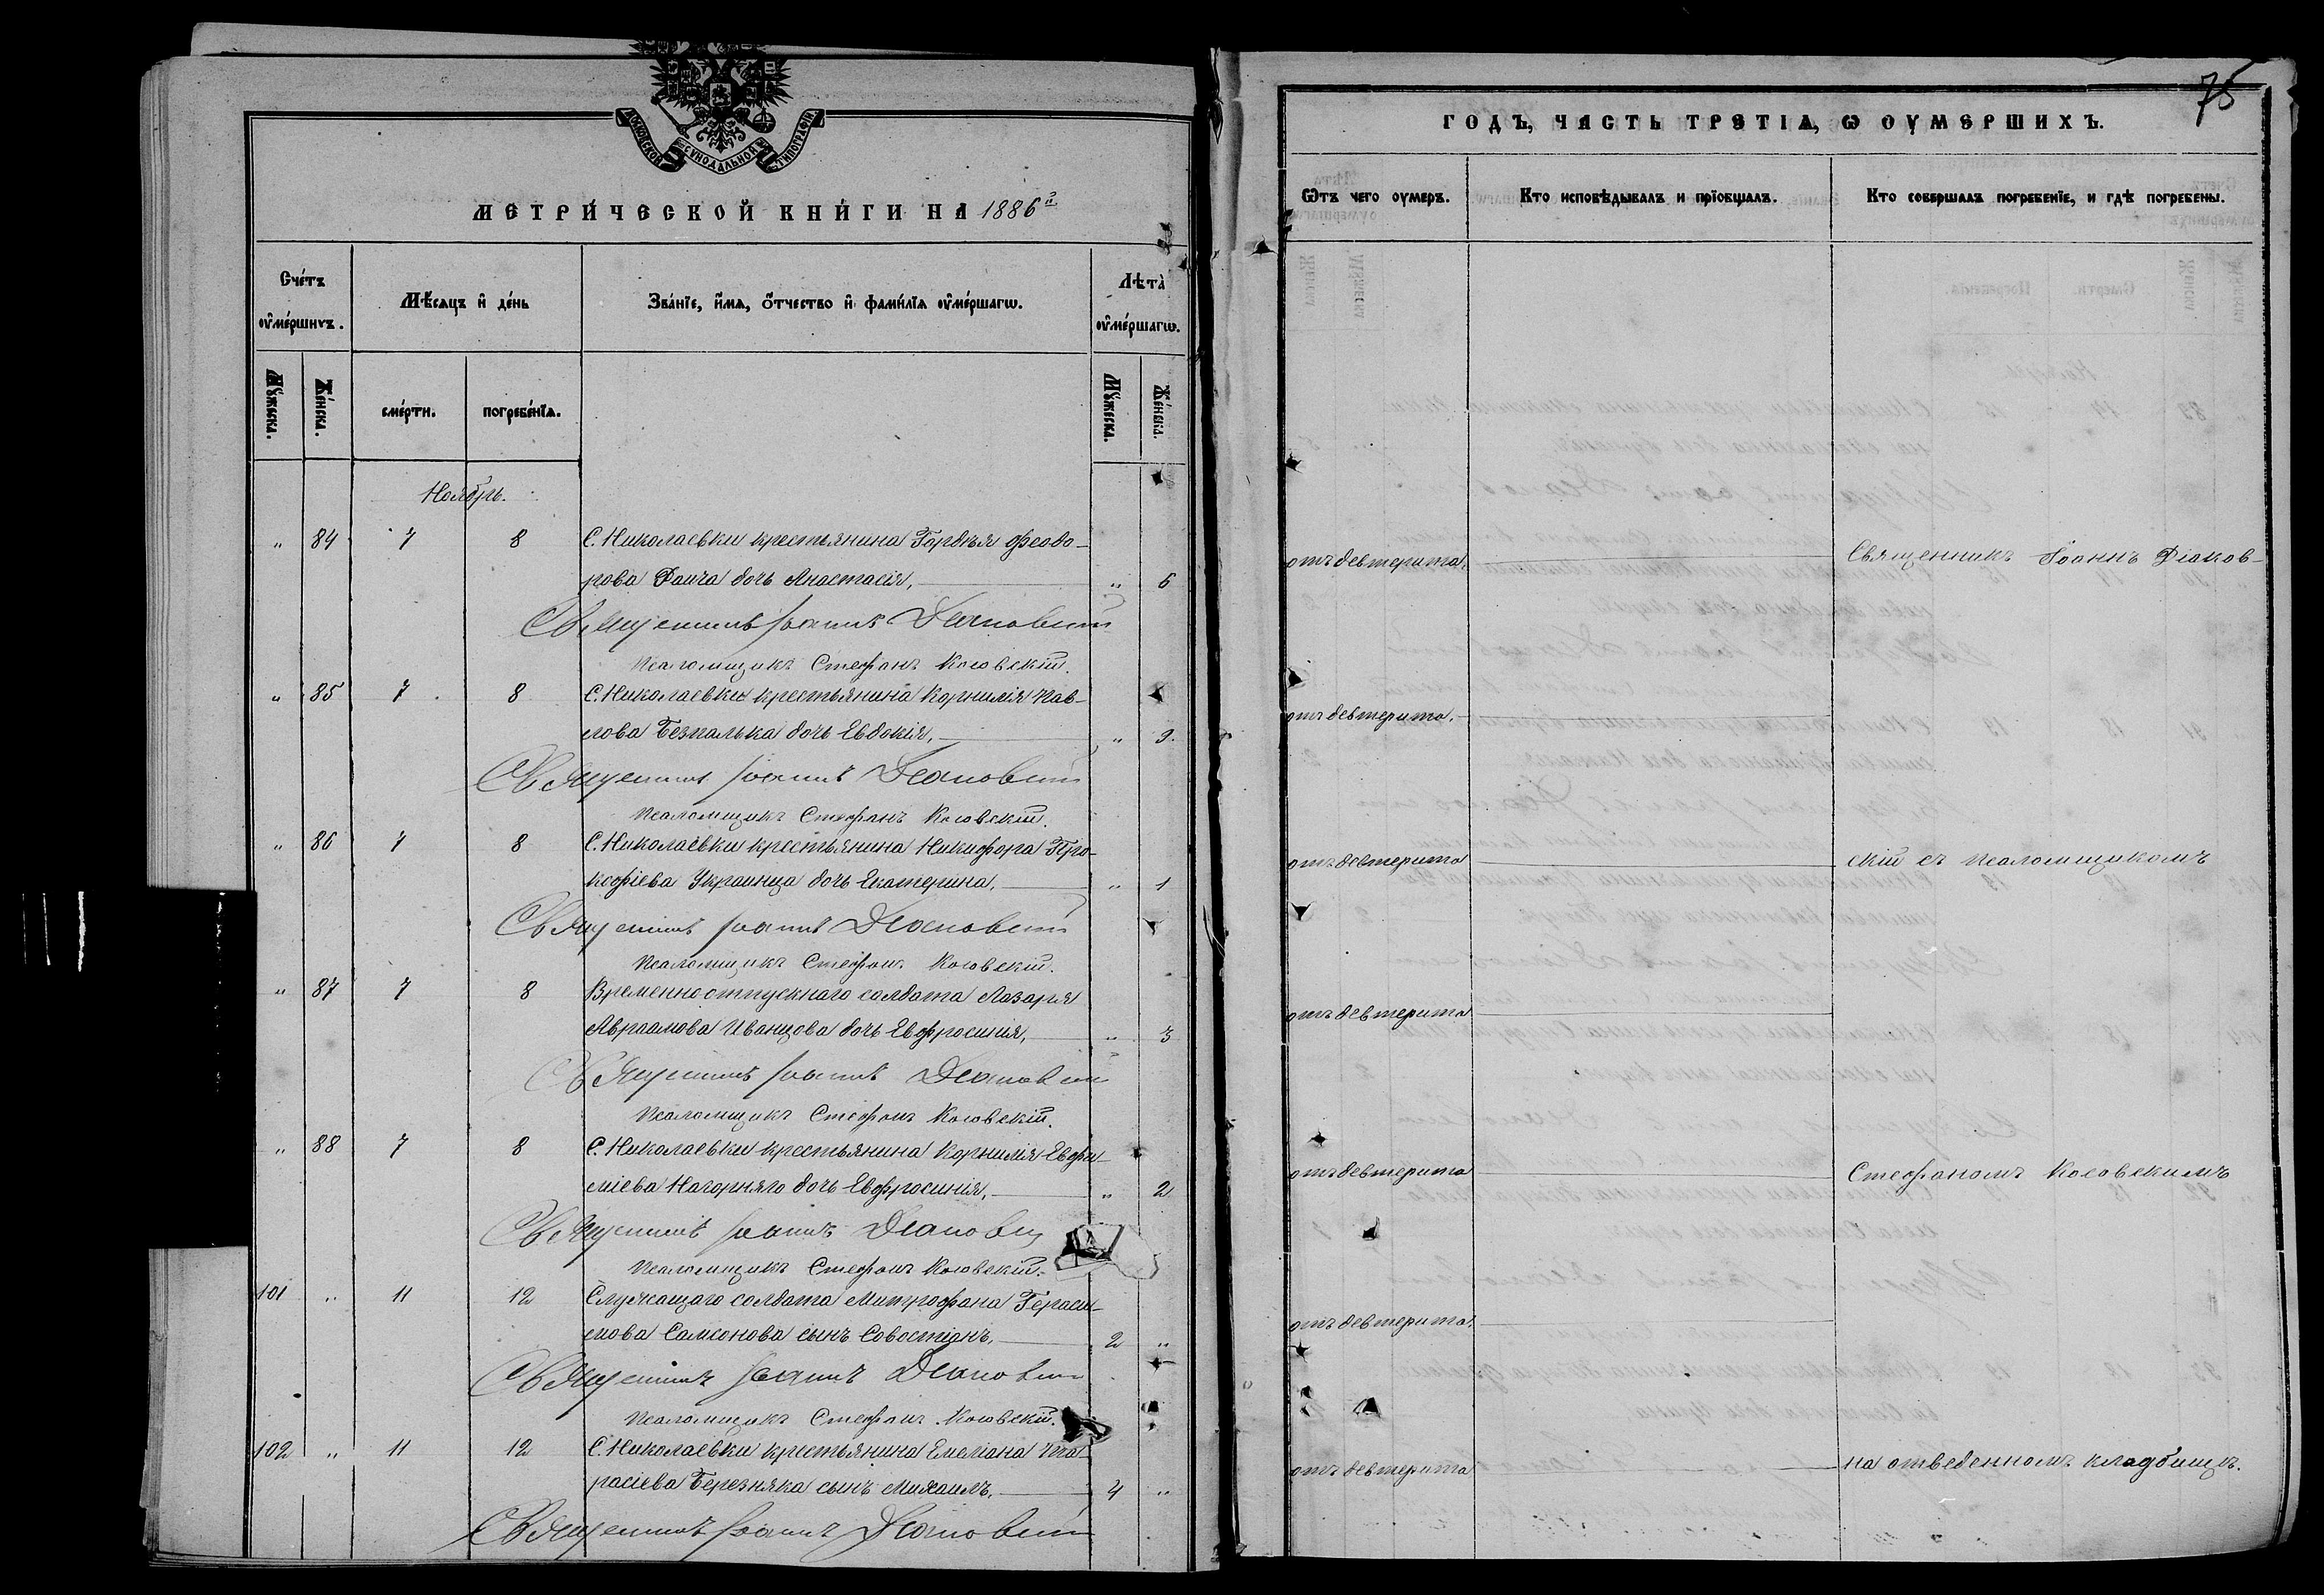 МОСКОВСКОЙ СѴНОДАЛЬНОЙ ТИПОГРАФІИ
МЕТРИ́ЧЕСКОЙ КНИ́ГИ НА 1886й
Счéтъ ᲂу҆мéршихъ.
Мѣ́сяцъ и҆ дéнь
Звáнїе, и҆́мѧ, ѻ҆́тчество и҆ фами́лїѧ ᲂу҆мéршагѡ.
Лѣтà ᲂу҆мéршагѡ.
Мꙋ́жеска.
Жéнска.
смéрти.
погребéнїѧ.
Мꙋ́жеска.
Жéнска.
Ноябрь.
„ 84 7 8 С. Николаевки крестьянина Гордѣя Ѳеодо-
рова Заича дочь Анастасія, „ 6
Священникъ Іоаннъ Діаковскій
Псаломщикъ Стефанъ Косовскій.
„ 85 7 8 С. Николаевки крестьянина Корнилія Пав-
лова Безпалька дочь Евдокія, „ 9.
Священникъ Іоаннъ Діаковскій
Псаломщикъ Стефанъ Косовскій.
„ 86 7 8 С. Николаевки крестьянина Никифора Про-
кофіева Украинца дочь Екатерина, „ 1
Священникъ Іоаннъ Діаковскій
Псаломщикъ Стефанъ Косовскій.
„ 87 7 8 Временно отпускнаго солдата Лазаря
Авраамова Иванцова дочь Евфросинія, „ 3
Священникъ Іоаннъ Діаковскій
Псаломщикъ Стефанъ Косовскій.
„ 88 7 8 С. Николаевки крестьянина Корнилія Евфи-
міева Нагорняго дочь Евфросинія, „ 2
Священникъ Іоаннъ Діаковскій
Псаломщикъ Стефанъ Косовскій.
101 „ 11 12 Служащаго солдата Митрофана Гераси-
мова Самсонова сынъ Совостіанъ, 2 „
Священникъ Іоаннъ Діаковскій
Псаломщикъ Стефанъ Косовскій.
102 „ 11 12 С. Николаевки крестьянина Емеліана Та-
расіева Березняка сынъ Михаилъ, 4 „
Священникъ Іоаннъ Діаковскій
75
ГОДЪ, ЧАСТЬ ТРЕТІѦ, Ѡ ОУМЕРШИХЪ.
Ѿтъ чего оумеръ.
Кто исповѣдывалъ и прїобщалъ.
Кто совершалъ погребенїе, и гдѣ погребены.
отъ девтерита. Священникъ Іоаннъ Діаков-
отъ девтерита.
отъ девтерита скій съ псаломщикомъ
отъ девтерита
отъ девтерита Стефаномъ Косовскимъ
отъ девтерита.
отъ девтерита на отведенномъ кладбищѣ.